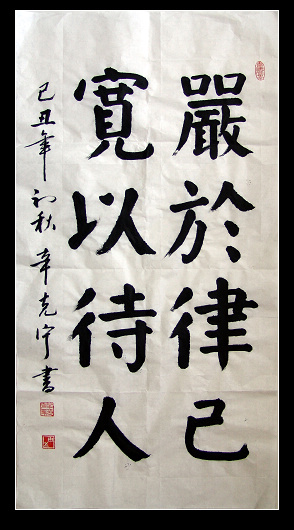 嚴於律己
寬以待人
己丑年初秋辛克宁書